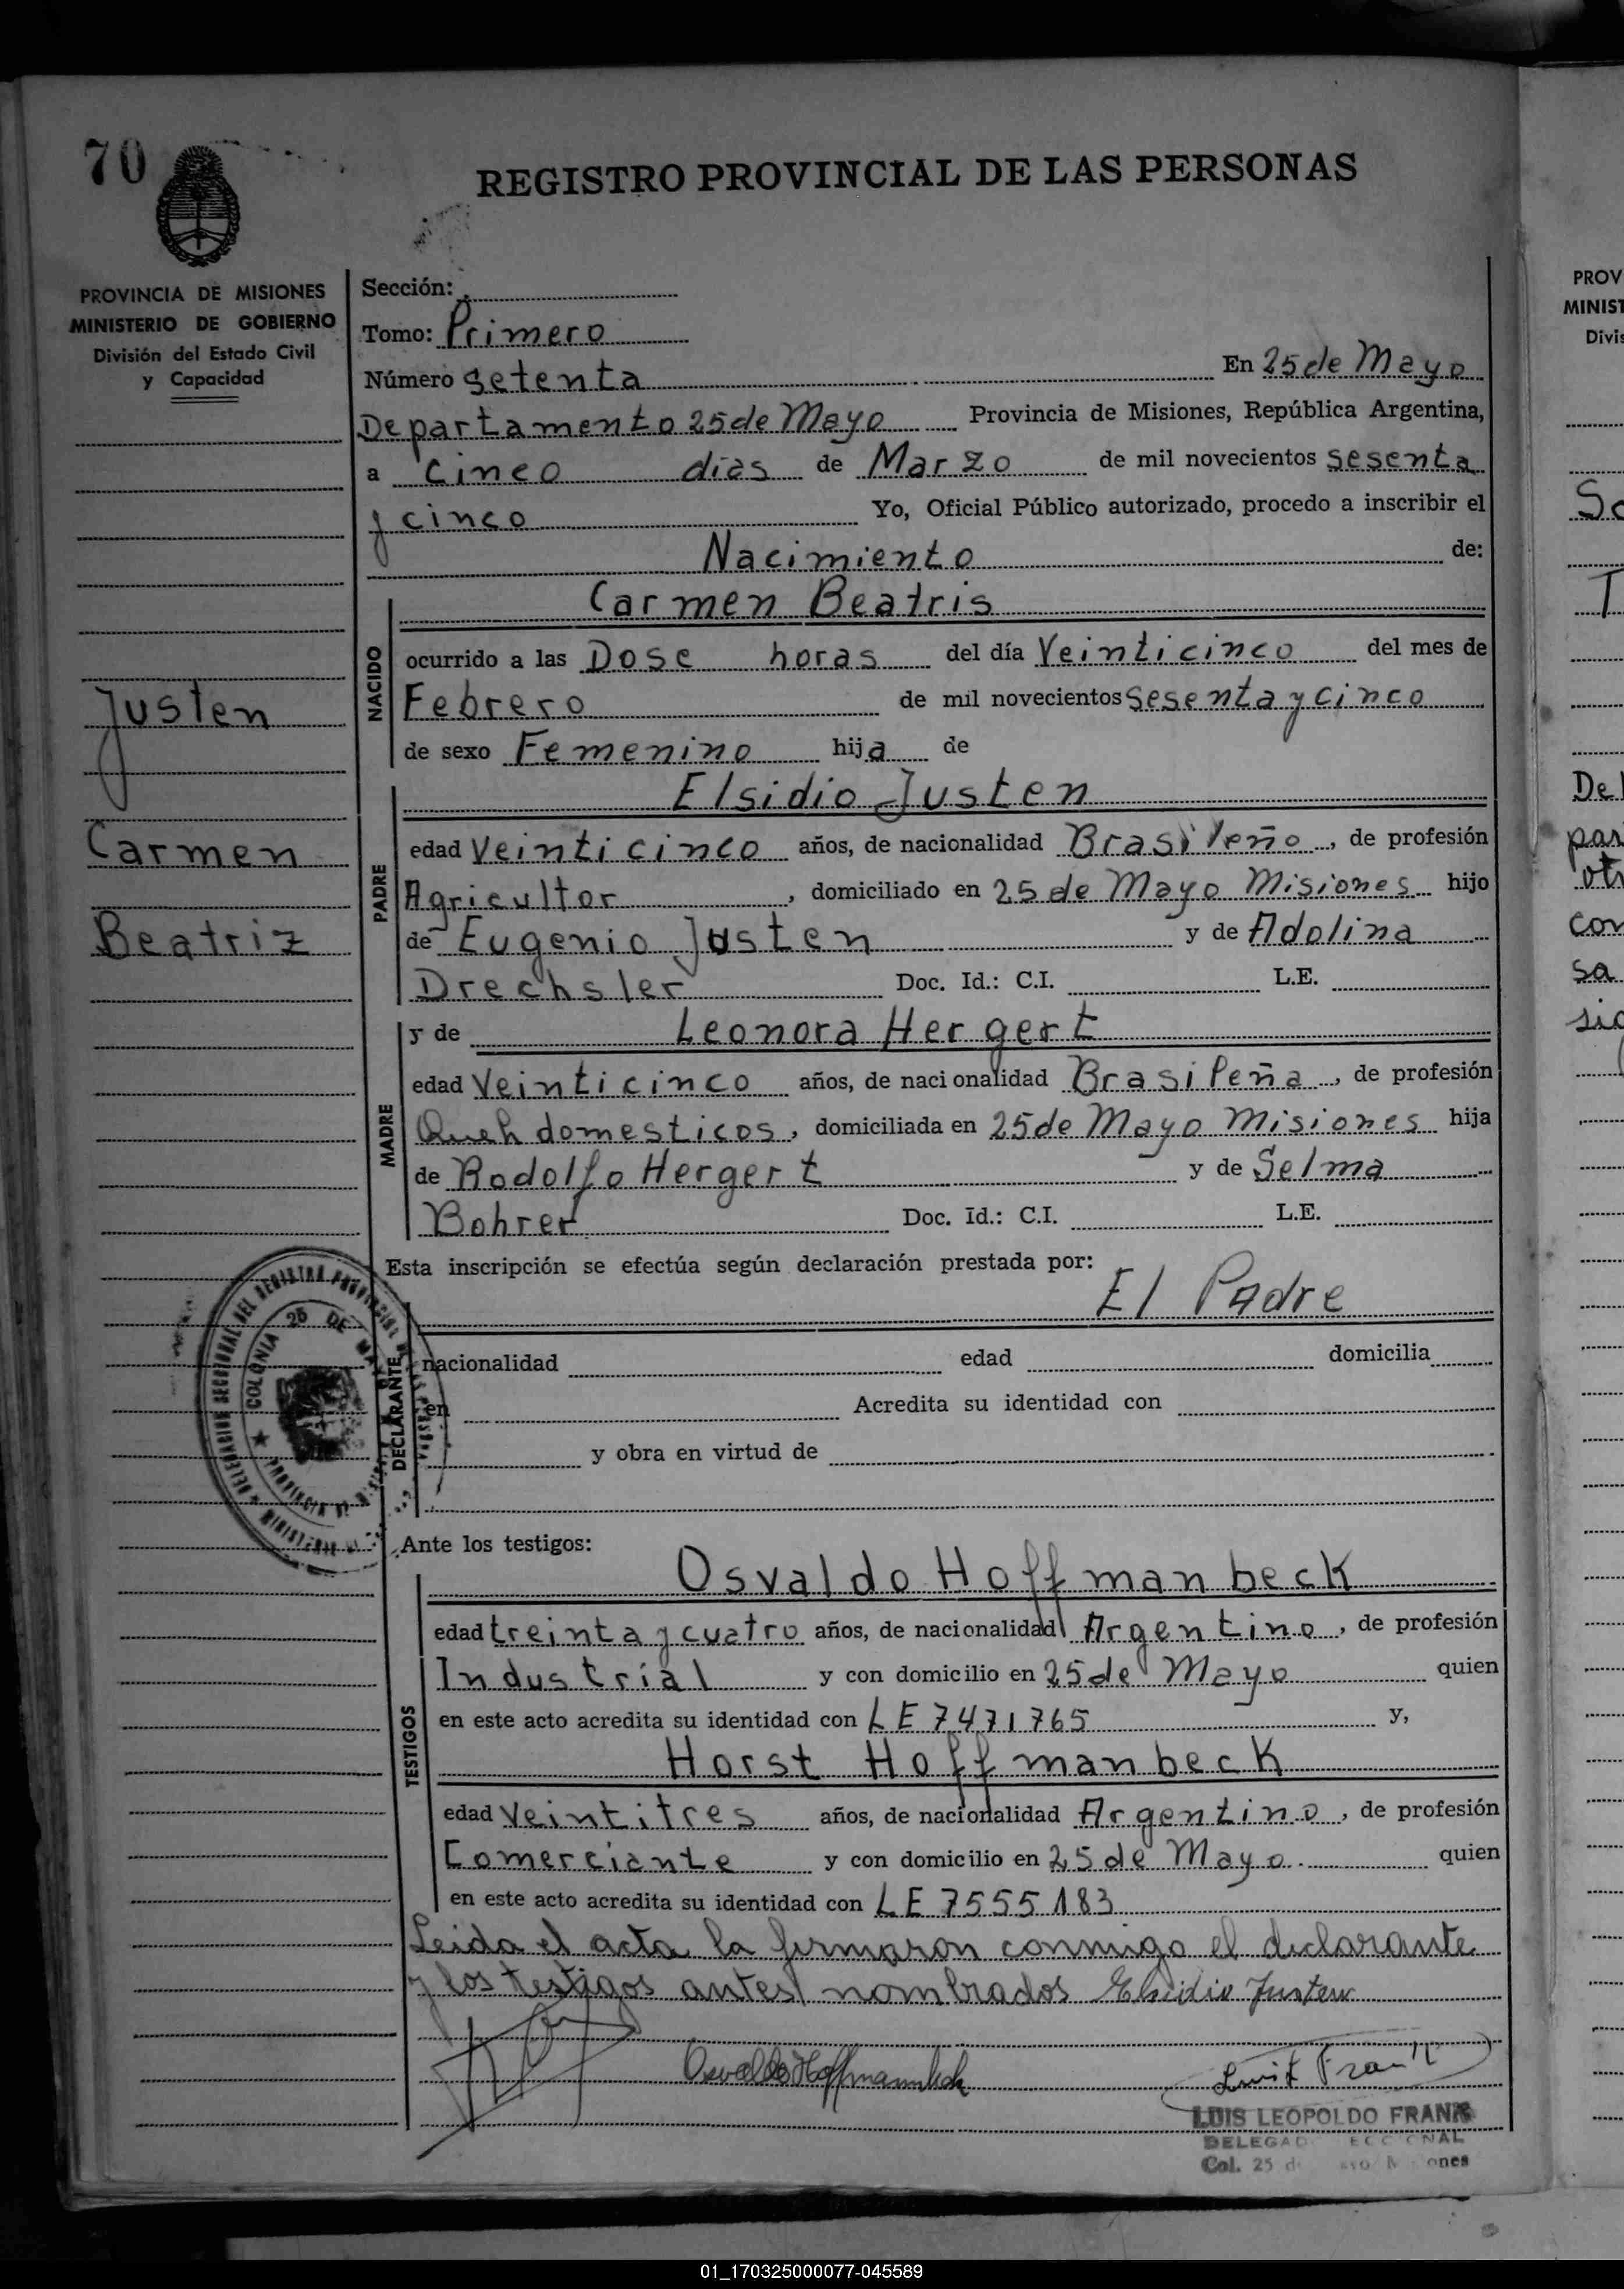 70
REGISTRO PROVINCIAL DE LAS PERSONAS
PROVINCIA DE MISIONES
MINISTERIO DE GOBIERNO
División del Estado Civil
y Capacidad
Justen
Carmen
Beatriz
Sección:
Tomo: Primero
Número setenta En 25 de Mayo
Departamento 25 de Mayo Provincia de Misiones, República Argentina,
a cinco dias de Marzo de mil novecientos sesenta
y cinco Yo, Oficial Público autorizado, procedo a inscribir el
Nacimiento de:
NACIDO
Carmen Beatris
ocurrido a las Dose horas del día Veinticinco del mes de
Febrero de mil novecientos sesenta y cinco
de sexo Femenino hija de
PADRE
Elsidio Justen
edad Veinticinco años, de nacionalidad Brasileño, de profesión
Agricultor, domiciliado en 25 de Mayo Misiones hijo
de Eugenio Justen y de Adolina
Drechsler Doc. Id.: C.I. L.E.
MADRE
y de Leonora Hergert
edad Veinticinco años, de nacionalidad Brasileña, de profesión
Queh domesticos, domiciliada en 25 de Mayo Misiones hija
de Rodolfo Hergert y de Selma
Bohrer Doc. Id.: C.I. L.E.
Esta inscripción se efectúa según declaración prestada por:
El Padre
DECLARANTE
nacionalidad edad domicilia
en Acredita su identidad con
y obra en virtud de
COLONIA 25 DE
Ante los testigos:
TESTIGOS
Osvaldo Hoffmanbeck
edad treinta y cuatro años, de nacionalidad Argentino, de profesión
Industrial y con domicilio en 25 de Mayo quien
en este acto acredita su identidad con LE 7471765 y,
Horst Hoffmanbeck
edad Veintitres años, de nacionalidad Argentino, de profesión
Comerciante y con domicilio en 25 de Mayo quien
en este acto acredita su identidad con LE 7555183
Leida el acta la firmaron conmigo el declarante
y los testigos antes nombrados Elsidio Justen
Osvaldo Hoffmannbeck
Luis L Frank
LUIS LEOPOLDO FRANK
Col. 25
PROV
MINIST
Divis
01_170325000077-045589